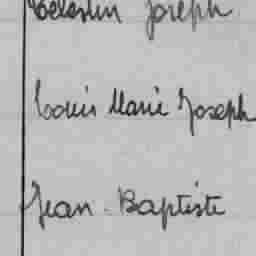 Célestin Joseph
Louis Marie Joseph
Jean-Baptiste